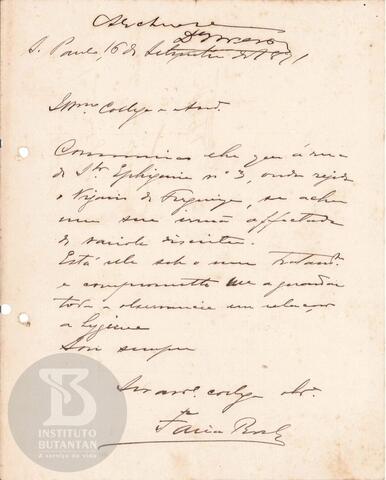 Archive-se
S. Paulo, 16 de Setembro de 1891
Illmo. Collega e Amo.
Communico lhe que á rua
de Sta. Ephigenia nº 3, onde reside
o Vigario da Freguezia, se acha
uma sua irmã affectada
de variola discreta.
Está elle sob o meu tratamto.
e comprometto me a guardar
toda a observancia em relação
a hygiene
Sou sempre
collega obr.
Faria Rocha
INSTITUTO
BUTANTAN
A serviço da vida